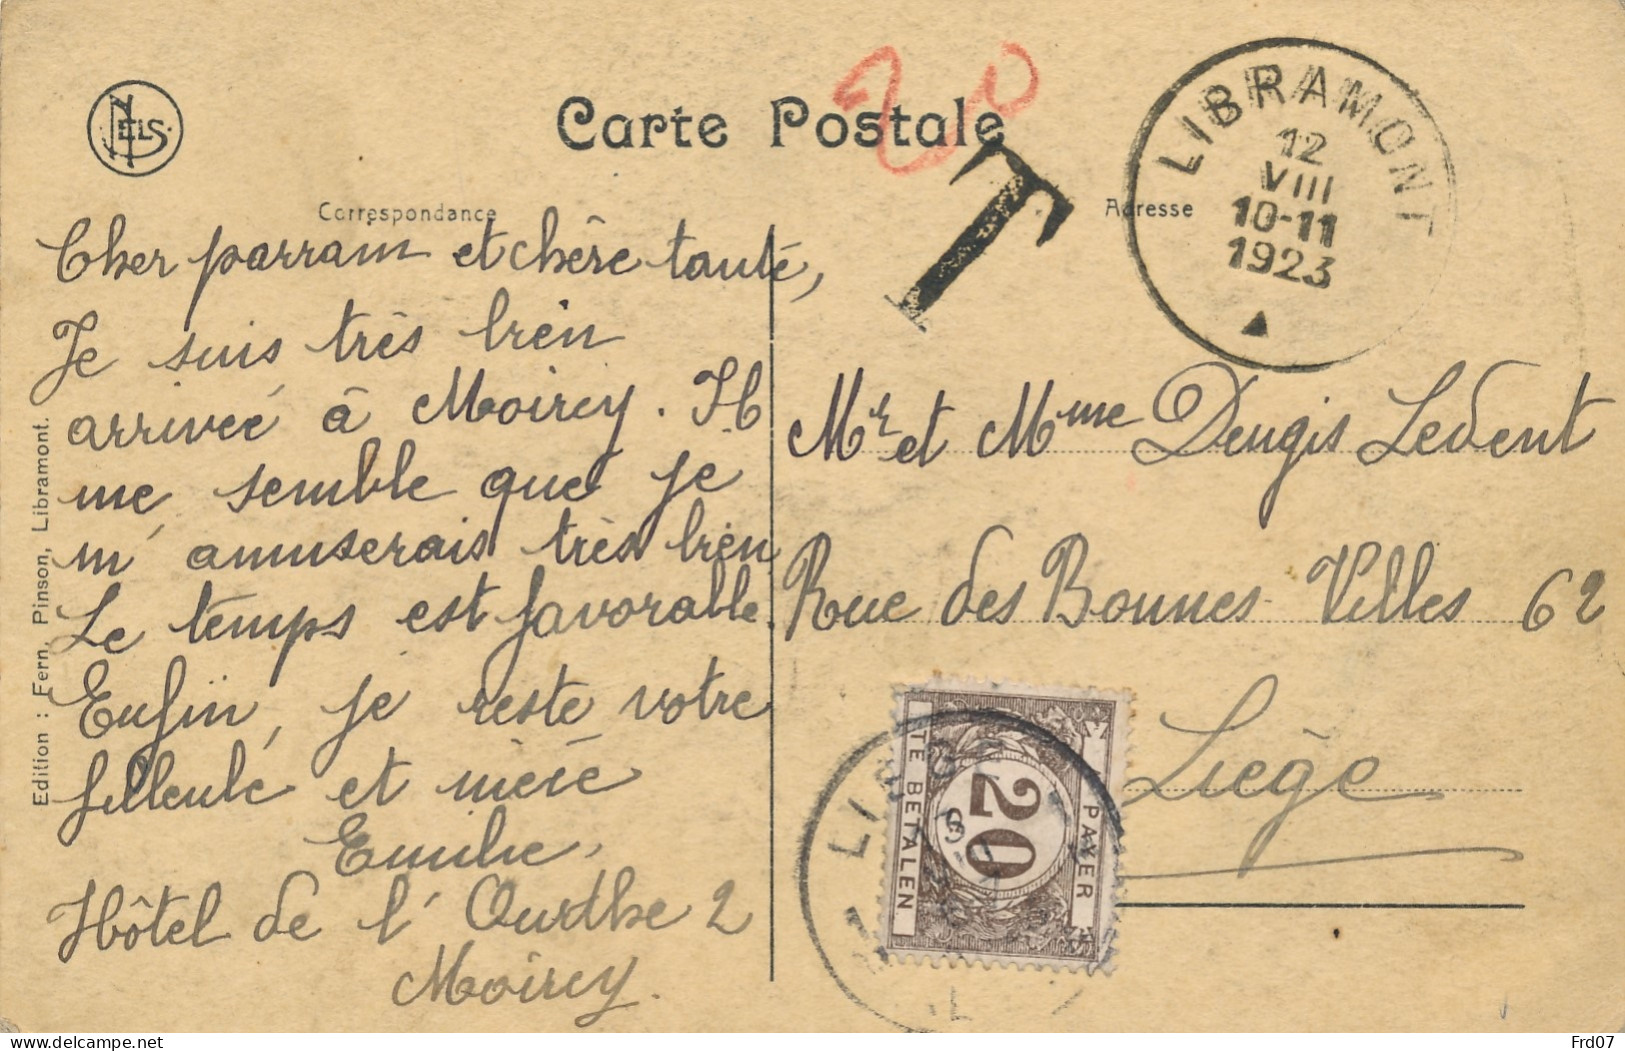 NELS
Carte Postale
20
T
LIBRAMONT
12
VIII
10-11
1923
Correspondance
Adresse
Cher parrain et chère tante,
Je suis très bien
arrivée à Moircy. Il
me semble que je
m'amuserais très bien
Le temps est favorable.
Enfin, je reste votre
filleule et nièce
Emilie.
Hôtel de l'Ourthe 2
Moircy.
Mr et Mme Dengis Ledent
Rue des Bonnes Villes 62
Liège
A PAYER
20
TE BETALEN
Edition : Fern. Pinson, Libramont.
www.delcampe.net
Frd07